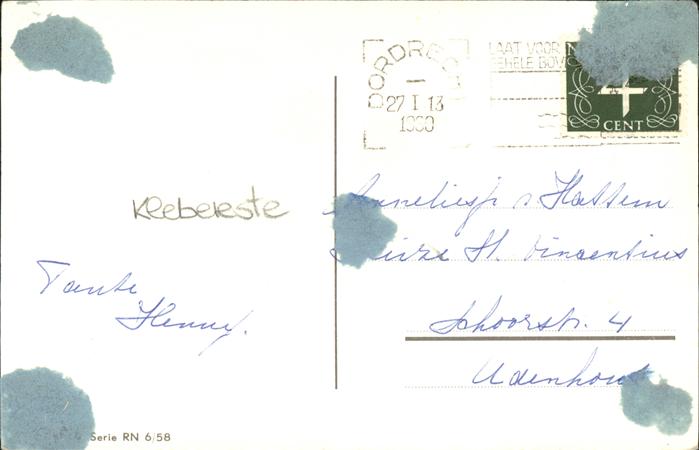 DORDRECHT
27 I 13
1960
LAAT VOOR
GEHELE BOV
4
CENT
Klebereste
Anneliesje v Hattem
Huize St. Vincentius
Schoorstr. 4
Udenhout
Tante
Henny.
Serie RN 6/58